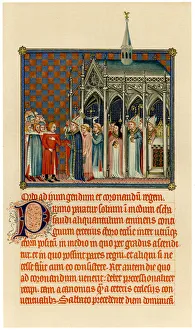 Ordo ad inungendum et coronandū regem
Primo paratur solium in modum eschafaudi
aliquantulum eminens contiguum
exterius choro ecclesie inter utrumque
chorum positum in medio in quo per gradus ascenditur
et in quo possint pares regni et aliqui si necesse
fuerit cum eo consistere. Rex autem die quo
ad coronandum venerit debet processionaliter
recipi tam a canonicis quam a ceteris ecclesiis
conventualibus. Sabbato precedente diem dominicā